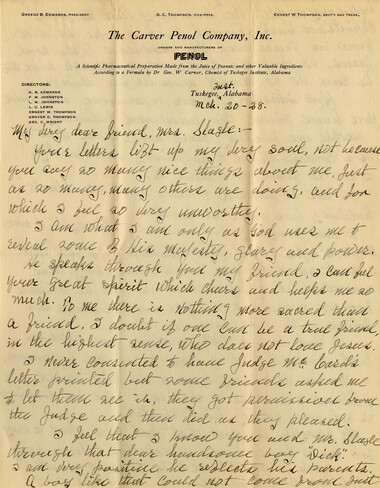 GREENE B. EDWARDS, PRESIDENT G. C. THOMPSON, VICE-PRES. ERNEST W THOMPSON, SEC'Y AND TREAS.
The Carver Penol Company, Inc.
OWNERS AND MANUFACTURERS OF
PENOL
A Scientific Pharmaceutical Preparation Made from the Juice of Peanuts and other Valuable Ingredients
According to a Formula by Dr Geo. W Carver, Chemist of Tuskegee Institute, Alabama
DIRECTORS:
G. B. EDWARDS
F. M. JOHNSTON
L. M. JOHNSTON
L. C. LEWIS
ERNEST W. THOMPSON
GROVER C. THOMPSON
GEO. C. WRIGHT
Inst.
Tuskegee, Alabama
Mch. 20-28.
My very dear friend, Mrs. Slagle:-
Your letters lift up my very soul, not because
you say so many nice things about me, just
as so many, many others are doing, and for
which I feel so very unworthy.
I am what I am only as God uses me to
reveal some of His majesty, glory and power.
He speaks through you my friend, I can feel
your great spirit which cheers and helps me so
much. To me there is nothing more sacred than
a friend. I doubt if one can be a true friend,
in the highest sense, who does not love Jesus.
I never consented to have Judge Mc Cord's
letter printed but some friends asked me
to let them see it, they got permission from
the Judge and then did as they pleased.
I feel that I know you and Mr. Slagle
through that dear handsome boy "Dick"
I am very positive he reflects his parents.
A boy like that could not come from just